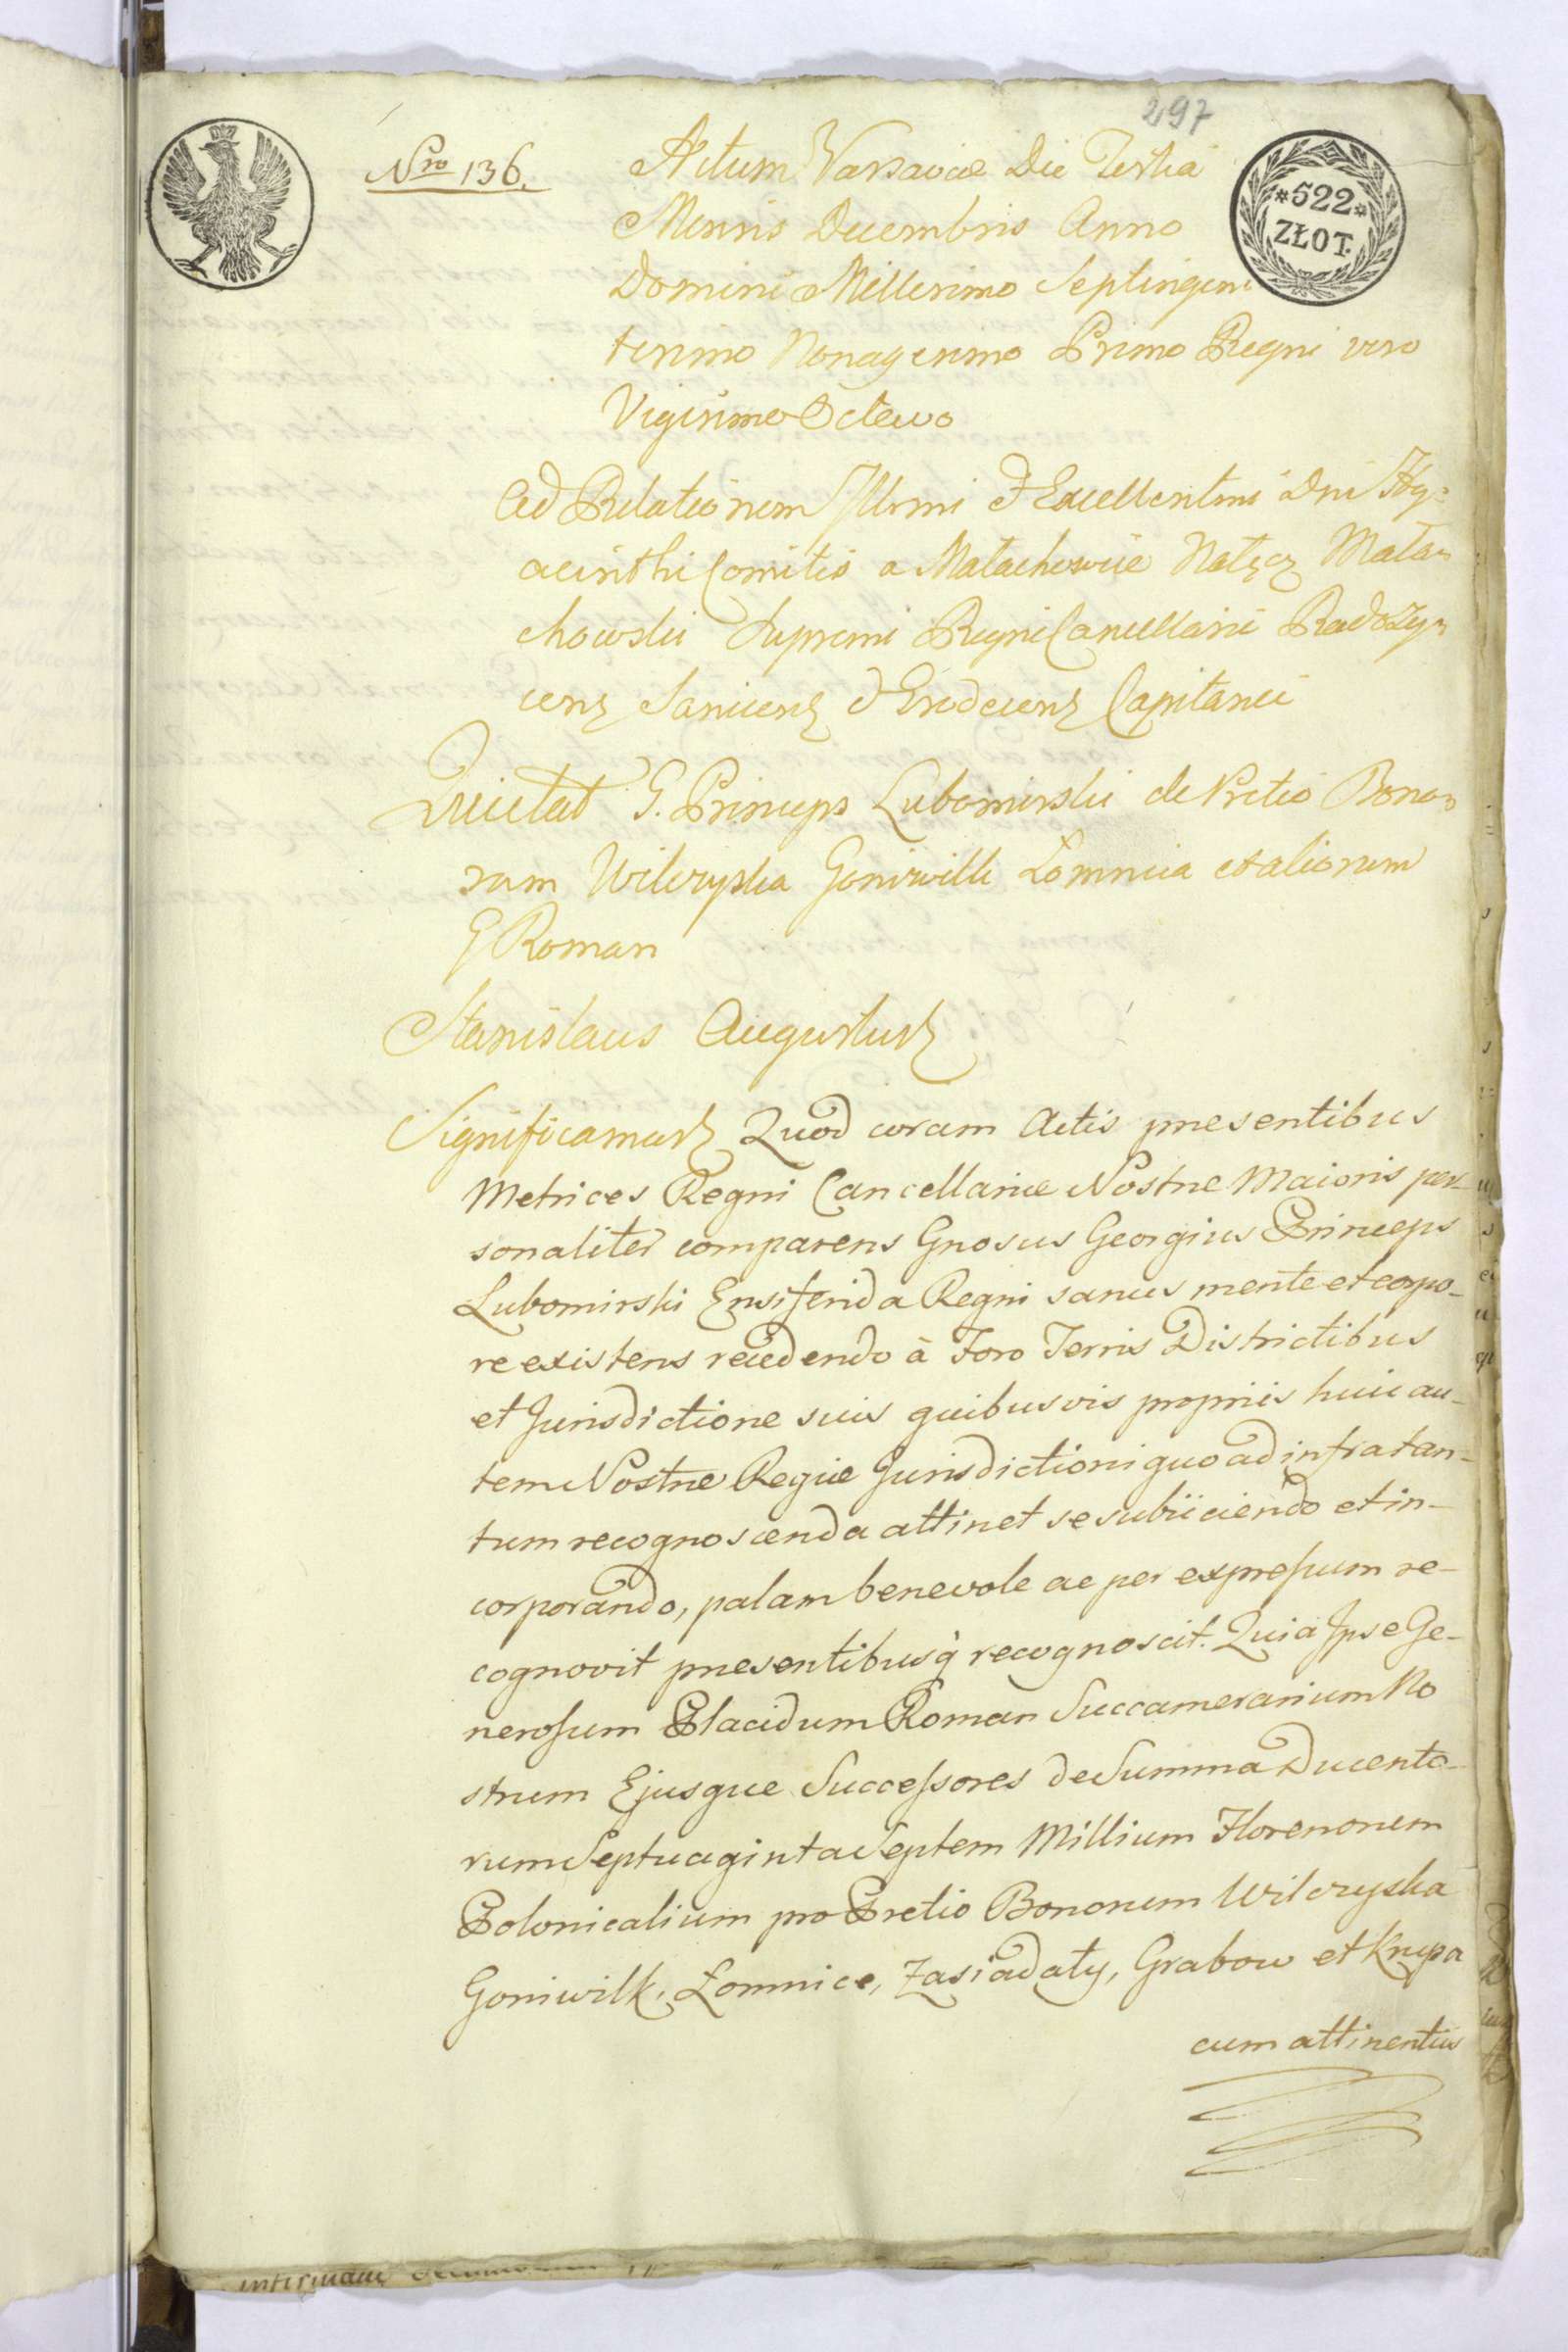 297
Nro 136.
Actum Varsaviæ Die Tertia
Mensis Decembris Anno
Domini Millesimo Septingen
tesimo Nonagesimo Primo Regni vero
Vigesimo Octavo
*522*
ZŁOT.
Ad Relationem Illrmi & Excellentmi Dni Hy=
acinthi Comitis a Małachowice Nałęcz Mała=
chowski Supremi Regni Cancellarii Radoszy=
cens Sanicens & Grodecens Capitanei
Quietat G. Princeps Lubomirski de Pretio Bono=
rum Wilczyska Goniwilk Łomnica et aliorum
G Roman
Stanislaus Augustus
Significamus Quod coram Actis præsentibus
Metrices Regni Cancellariæ Nostræ Maioris per-
sonaliter comparens Gnosus Georgius Princeps
Lubomirski Ensiferida Regni sanus mente et corpo-
re existens recedendo à Foro Terris Districtibus
et Jurisdictione suis quibusvis propriis huic au-
tem Nostræ Regiæ Jurisdictioni quo ad infra tan-
tum recognoscenda attinet se subiiciendo et in-
corporando, palam benevole ac per expressum re-
cognovit præsentibusq recognoscit. Quia Ipse Ge-
nerosum Placidum Roman Succamerarium No
strum Ejusque Successores de Summa Ducento-
rum Septuaginta Septem Millium Florenorum
Polonicalium pro Pretio Bonorum Wilczyska
Goniwilk, Łomnice, Zasiadały, Grabow et Krępa
cum attinentiis